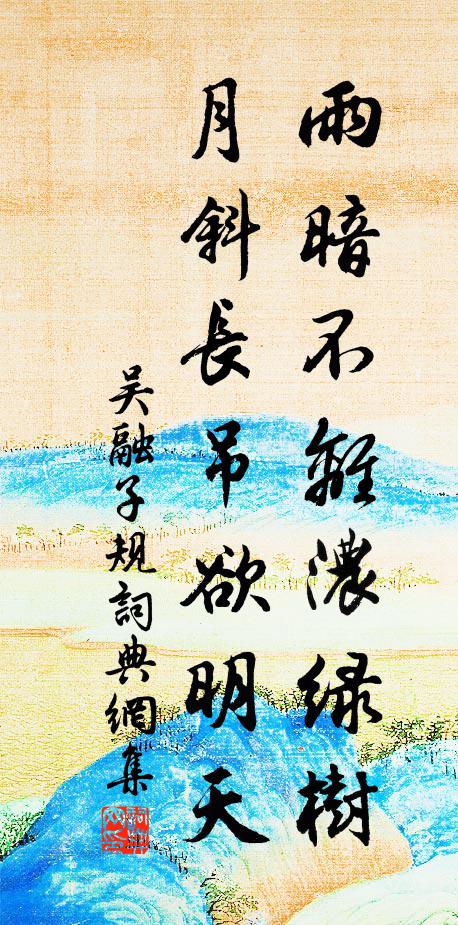 雨暗不離濃綠樹
月斜長吊欲明天
吴融子規詞典網集